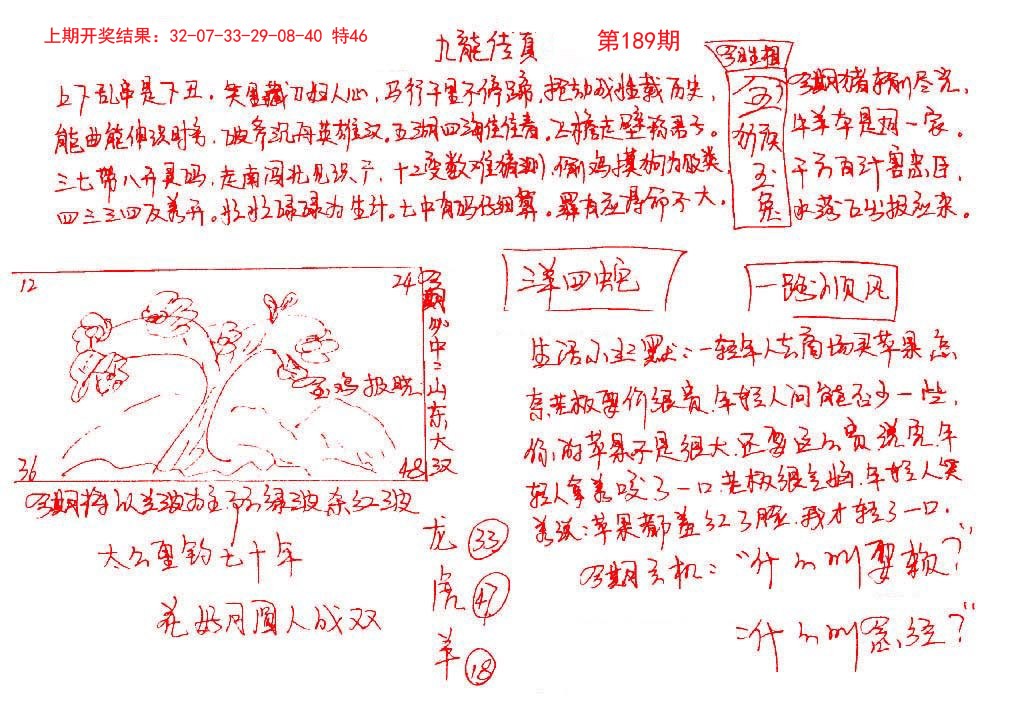 上期开奖结果：32-07-33-29-08-40 特46
九龍传真
第189期
今期生肖相
上下乱串是下丑。笑里藏刀妇人心，马行千里不停蹄，振动成桩载历史，
能曲能伸识时务，破釜沉舟英雄汉。五湖四海佳佳音。飞檐走壁称君子。
三七带八开灵码，走南闯北见识广，十二变数难猜测，偷鸡摸狗为败类，
四三三四及差开。忙忙碌碌为生计。七中有码仔细算。罪有应得命不大。
今期猪狗利尽完，
牛羊本是同一家。
千方百计害忠臣，
水落石出报应来。
玉兔
三羊四蛇
一路顺风
12
24
36
48
玉鸡报晓
今期必中二山东大双
今期特以兰波为主 不防绿波 杂红波
太公垂钓七十年
花好月圆人成双
龙 33
虎 47
羊 18
生活小幽默：一轻年人去商场买苹果，
老板要价很高，年轻人问能否少一些，
你的苹果不是很大，还要这么贵，说完年
轻人拿着咬了一口，老板很生气，年轻人笑
着说：苹果都羞红了脸，我才轻了一口。
今期玄机：“什么叫耍赖？”
“什么叫念经？”